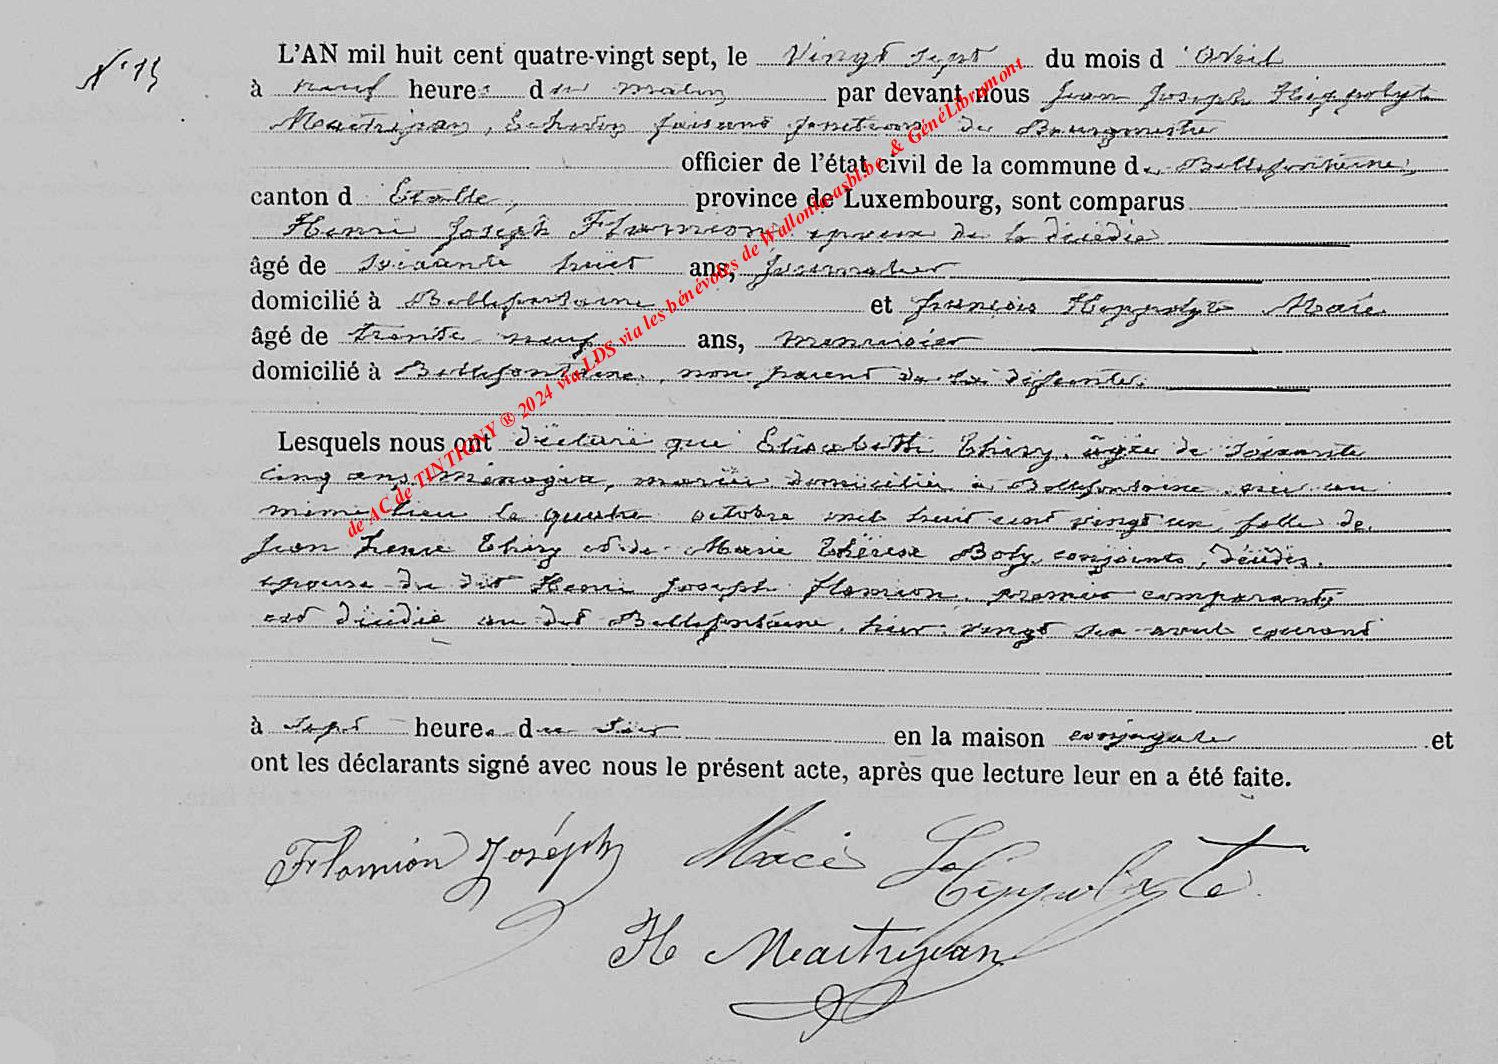 N° 15
L'AN mil huit cent quatre-vingt sept, le vingt sept du mois d'Avril
à neuf heures du matin par devant nous Jean Joseph Hippolyte
Maitrejean, Echevin faisant fonctions de Bourgmestre
officier de l'état civil de la commune de Bellefontaine,
canton d'Etalle, province de Luxembourg, sont comparus
Henri Joseph Flamion époux de la décédée
âgé de soixante huit ans, journalier
domicilié à Bellefontaine et françois Hippolyte Macé
âgé de trente neuf ans, menuisier
domicilié à Bellefontaine, non parent de la défunte.
Lesquels nous ont déclaré que Elisabeth Thiry, âgée de soixante
cinq ans, ménagère, mariée domiciliée à Bellefontaine, née au
même lieu le quatre octobre mil huit cent vingt un, fille de
Jean Thiry et de Marie Thérèse Boly, conjoints, décédés.
épouse du dit Henri Joseph Flamion, premier comparant,
est décédée au dit Bellefontaine, hier, vingt six avril courant
à sept heures du soir en la maison conjugale et
ont les déclarants signé avec nous le présent acte, après que lecture leur en a été faite.
Flamion Joséph Macé Hippolyte
H Maitrejean
de AC de TINTIGNY ® 2024 via LDS via les bénévoles de Wallonia asbl.be & GénéLibramont